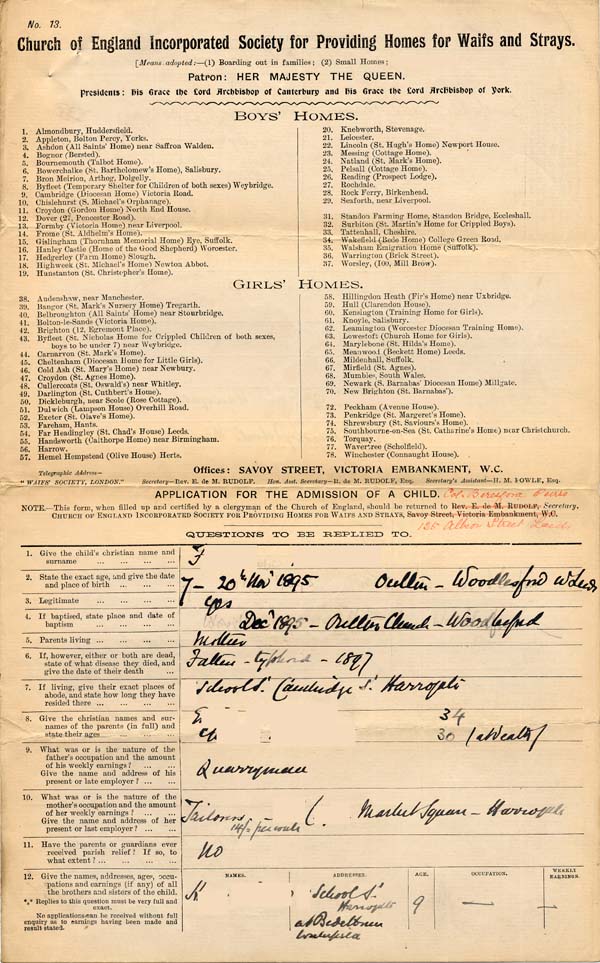 No. 13.
Church of England Incorporated Society for Providing Homes for Waifs and Strays.
[Means adopted:—(1) Boarding out in families; (2) Small Homes;
Patron: HER MAJESTY THE QUEEN.
Presidents: His Grace the Lord Archbishop of Canterbury and His Grace the Lord Archbishop of York.
BOYS' HOMES.
1. Almondbury, Huddersfield.
2. Appleton, Bolton Percy, Yorks.
3. Ashdon (All Saints' Home) near Saffron Walden.
4. Bognor (Bersted).
5. Bournemouth (Talbot Home).
6. Bowerchalke (St. Bartholomew's Home), Salisbury.
7. Bron Meirion, Arthog, Dolgelly.
8. Byfleet (Temporary Shelter for Children of both sexes) Weybridge.
9. Cambridge (Diocesan Home) Victoria Road.
10. Chislehurst (S. Michael's Orphanage).
11. Croydon (Gordon Home) North End House.
12. Dover (27, Pencester Road).
13. Formby (Victoria Home) near Liverpool.
14. Frome (St. Aldhelm's Home).
15. Gislingham (Thornham Memorial Home) Eye, Suffolk.
16. Hanley Castle (Home of the Good Shepherd) Worcester.
17. Hedgerley (Farm Home) Slough.
18. Highweek (St. Michael's Home) Newton Abbot.
19. Hunstanton (St. Christopher's Home).
20. Knebworth, Stevenage.
21. Leicester.
22. Lincoln (St. Hugh's Home) Newport House.
23. Messing (Cottage Home).
24. Natland (St. Mark's Home).
25. Pelsall (Cottage Home).
26. Reading (Prospect Lodge).
27. Rochdale.
28. Rock Ferry, Birkenhead.
29. Seaforth, near Liverpool.
31. Standon Farming Home, Standon Bridge, Eccleshall.
32. Surbiton (St. Martin's Home for Crippled Boys).
33. Tattenhall, Cheshire.
34. Wakefield (Bede Home) College Green Road.
35. Walsham Emigration Home (Suffolk).
36. Warrington (Brick Street).
37. Worsley, (100, Mill Brow).
GIRLS' HOMES.
38. Audenshaw, near Manchester.
39. Bangor (St. Mark's Nursery Home) Tregarth.
40. Belbroughton (All Saints' Home) near Stourbridge.
41. Bolton-le-Sands (Victoria Home).
42. Brighton (12, Egremont Place).
43. Byfleet (St. Nicholas Home for Crippled Children of both sexes,
boys to be under 7) near Weybridge.
44. Carnarvon (St. Mark's Home).
45. Cheltenham (Diocesan Home for Little Girls).
46. Cold Ash (St. Mary's Home) near Newbury.
47. Croydon (St. Agnes Home).
48. Cullercoats (St. Oswald's) near Whitley.
49. Darlington (St. Cuthbert's Home).
50. Dickleburgh, near Scole (Rose Cottage).
51. Dulwich (Lampson House) Overhill Road.
52. Exeter (St. Olave's Home).
53. Fareham, Hants.
54. Far Headingley (St. Chad's House) Leeds.
55. Handsworth (Calthorpe Home) near Birmingham.
56. Harrow.
57. Hemel Hempstead (Olive House) Herts.
58. Hillingdon Heath (Fir's Home) near Uxbridge.
59. Hull (Clarendon House).
60. Kensington (Training Home for Girls).
61. Knoyle, Salisbury.
62. Leamington (Worcester Diocesan Training Home).
63. Lowestoft (Church Home for Girls).
64. Marylebone (St. Hilda's Home).
65. Meanwood (Beckett Home) Leeds.
66. Mildenhall, Suffolk.
67. Mirfield (St. Agnes).
68. Mumbles, South Wales.
69. Newark (S. Barnabas' Diocesan Home) Millgate.
70. New Brighton (St. Barnabas').
72. Peckham (Avenue House).
73. Penkridge (St. Margaret's Home).
74. Shrewsbury (St. Saviour's Home).
75. Southbourne-on-Sea (St. Catharine's Home) near Christchurch.
76. Torquay.
77. Wavertree (Scholfield).
78. Winchester (Connaught House).
Telegraphic Address—
"WAIFS' SOCIETY, LONDON."
Offices: SAVOY STREET, VICTORIA EMBANKMENT, W.C.
Secretary—REV. E. DE M. RUDOLF. Hon. Asst. Secretary—R. DE M. RUDOLF, ESQ. Secretary's Assistant—H. M. FOWLE, ESQ.
APPLICATION FOR THE ADMISSION OF A CHILD.
NOTE.—This form, when filled up and certified by a clergyman of the Church of England, should be returned to Rev. E. de M. Rudolf, Secretary,
CHURCH OF ENGLAND INCORPORATED SOCIETY FOR PROVIDING HOMES FOR WAIFS AND STRAYS, Savoy Street, Victoria Embankment, W.C.
125 Albion Street Leeds
QUESTIONS TO BE REPLIED TO.
1. Give the child's christian name and
surname ... ... ... ...
F
2. State the exact age, and give the date
and place of birth ... ... ...
7 – 20th Nov 1895 Oulton – Woodlesford nr Leeds
3. Legitimate ... ... ... ...
yes
4. If baptised, state place and date of
baptism ... ... ... ...
Dec 1895 – Oulton Church – Woodlesford
5. Parents living ... ... ... ...
Mother
6. If, however, either or both are dead,
state of what disease they died, and
give the date of their death ...
Father – typhoid – 1897
7. If living, give their exact places of
abode, and state how long they have
resided there ... ... ... ...
School St. Cambridge St. Harrogate
8. Give the christian names and sur-
names of the parents (in full) and
state their ages ... ... ...
E 34
30 (at death)
9. What was or is the nature of the
father's occupation and the amount
of his weekly earnings? ... ...
Give the name and address of his
present or late employer? ... ...
Quarryman
10. What was or is the nature of the
mother's occupation and the amount
of her weekly earnings? ... ...
Give the name and address of her
present or last employer? ... ...
Tailoress
14/- per week ( Market Square – Harrogate
11. Have the parents or guardians ever
received parish relief? If so, to
what extent? ... ... ... ...
No
12. Give the names, addresses, ages, occu-
pations and earnings (if any) of all
the brothers and sisters of the child.
*** Replies to this question must be very full and
exact.
No applications can be received without full
enquiry as to earnings having been made and
result stated.
NAMES. ADDRESSES. AGE. OCCUPATION. WEEKLY
EARNINGS.
School St.
Harrogate
9 — —